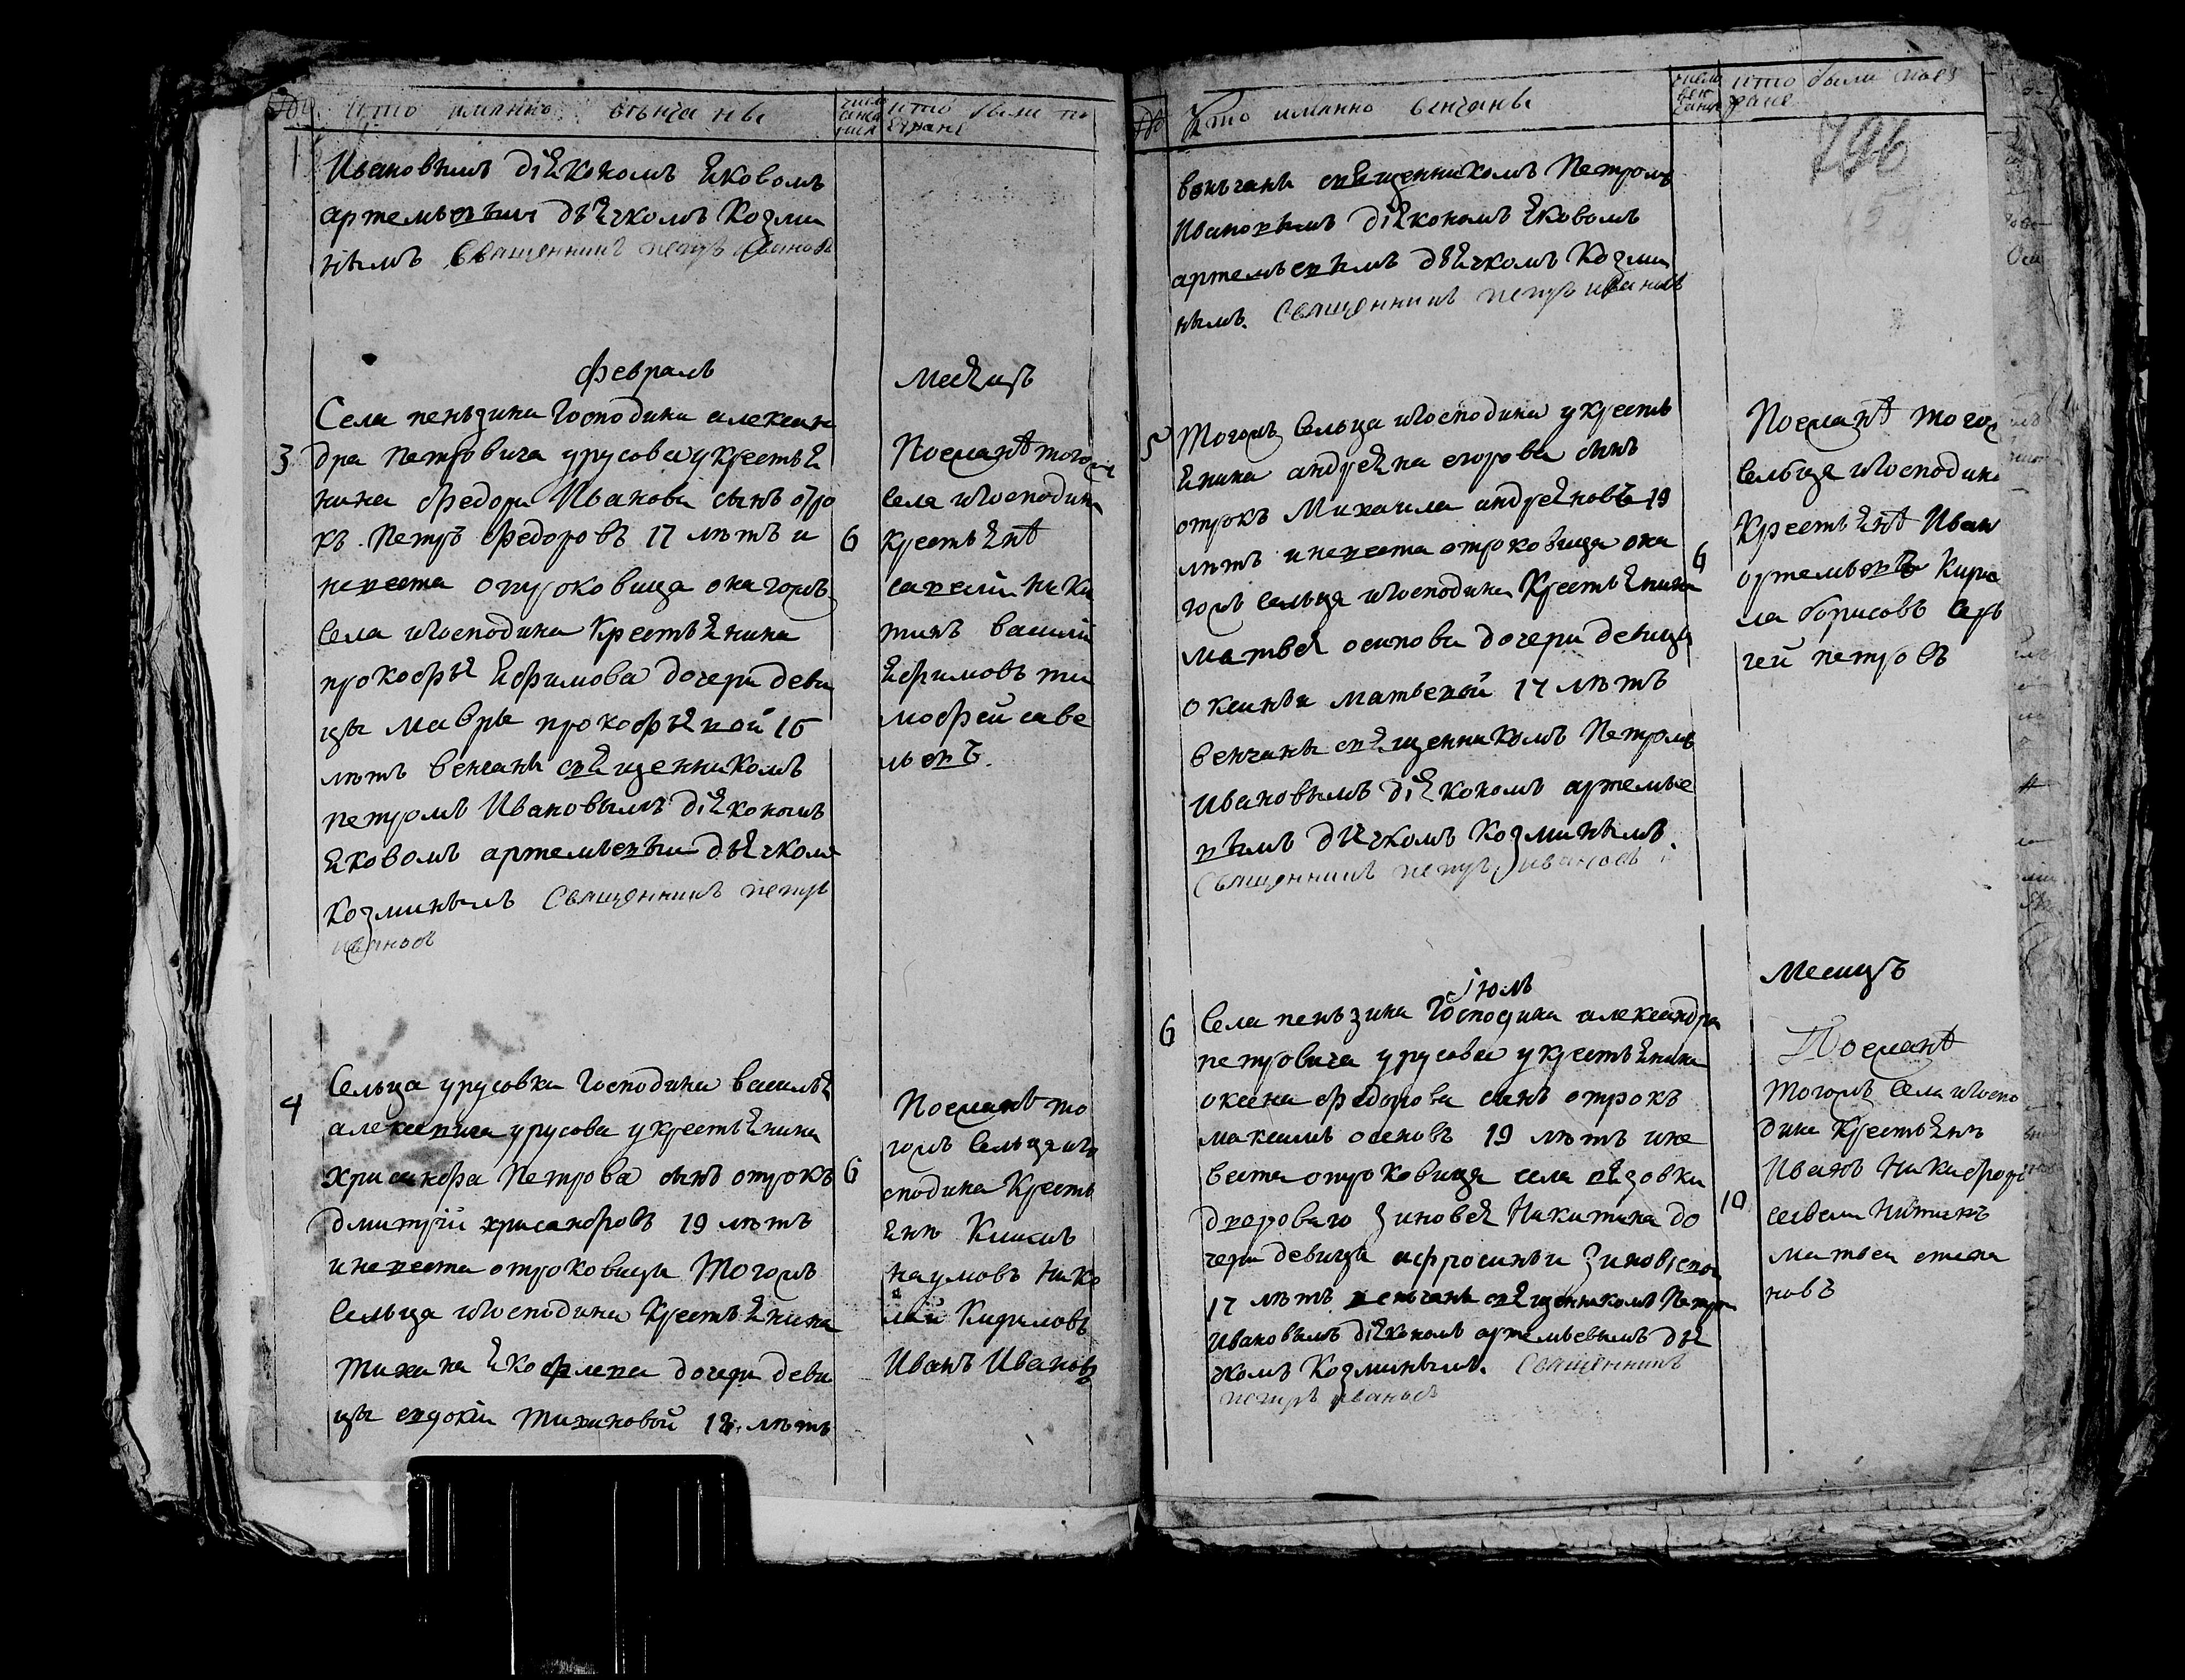 № кто имянно венчаны
число венчания
кто были поезжане
1
Ивановымъ дїякономъ яковомъ
артемьевым дьячкомъ Козми
нымъ Священникъ петръ Ивановъ
февраль
месяцъ
3
Села пеньзина Господина алексан
дра Петровича урусова укрестья
нина Федора Иванова сынъ отро
къ Петръ Федоровъ 17 лѣтъ и
невеста отроковица онагожъ
Села иГосподина Крестьянина
прокофья Ефимова дочери деви
цы мавры прокофьявой 16
лѣтъ венчаны священникомъ
петромъ Ивановымъ дїякономъ
яковомъ артемьевым дьячкомъ
Козминымъ Священникъ петръ
ивановъ
6
Поезжанѣ тогожъ
Села иГосподина
крестьянѣ
савелий ники
тинъ василий
Ефимовъ ти
мофей саве
льевъ.
4
Сельца урусовки Господина василья
алексевича урусова укрестьянина
хрисанфа Петрова сынъ отрокъ
дмитрїй хрисанфовъ 19 лѣтъ
иневеста отроковица Тогожъ
Сельца иГосподина Крестьянина
тихана якофлева дочери деви
цы евдокїи тихиновой 18 лѣтъ
6
Поезжанѣ то
гожъ Сельца иго
сподина Кресть
янѣ
наумовъ нико
лай Кириловъ
Иванъ Ивановъ
№ Кто имянно венчаны
число венчания
кто были поезжане
796
веньчаны священникомъ Петромъ
Ивановымъ дїякономъ яковомъ
артемьевымъ дьячкомъ Козми
нымъ. Священникъ петръ ивановъ
5
Тогожъ Сельца иГосподина укресть
янина андреяна егорова сынъ
отрокъ Михаила андреяновъ 19
лѣтъ иневеста отроковица она
гожъ Сельца иГосподина Крестьянина
матвея осипова дочери девицы
оксиньи матьвевой 17 лѣтъ
венчаны священникомъ Петромъ
Ивановымъ дїякономъ артемье
вымъ дьячкомъ Козминымъ.
Священникъ петръ ивановъ
6
Поезжанѣ тогожъ
Сельца иГосподина
Крестьянѣ Иван
артемьевъ Кирила
ла борисовъ Сер
гей петровъ
їюль
месицъ
6
Села пеньзина Господина александра
петровича урусова укрестьянина
оксена Федорова сынъ отрокъ
максимъ осеновъ 19 лѣтъ ине
веста отроковица села вязовки
двороваго Зиновея Никитина до
чери девицы афросиньи Зиновїевой
17 лѣтъ веньчаны священникомъ Петром
Ивановымъ дїякономъ артемьевымъ дья
чкомъ Козминымъ. Священникъ
петръ ивановъ
10
Поезжанѣ
тогожъ Села иГоспо
дина Крестьянѣ
Иванъ Никифоръ
матвеи степа
новъ